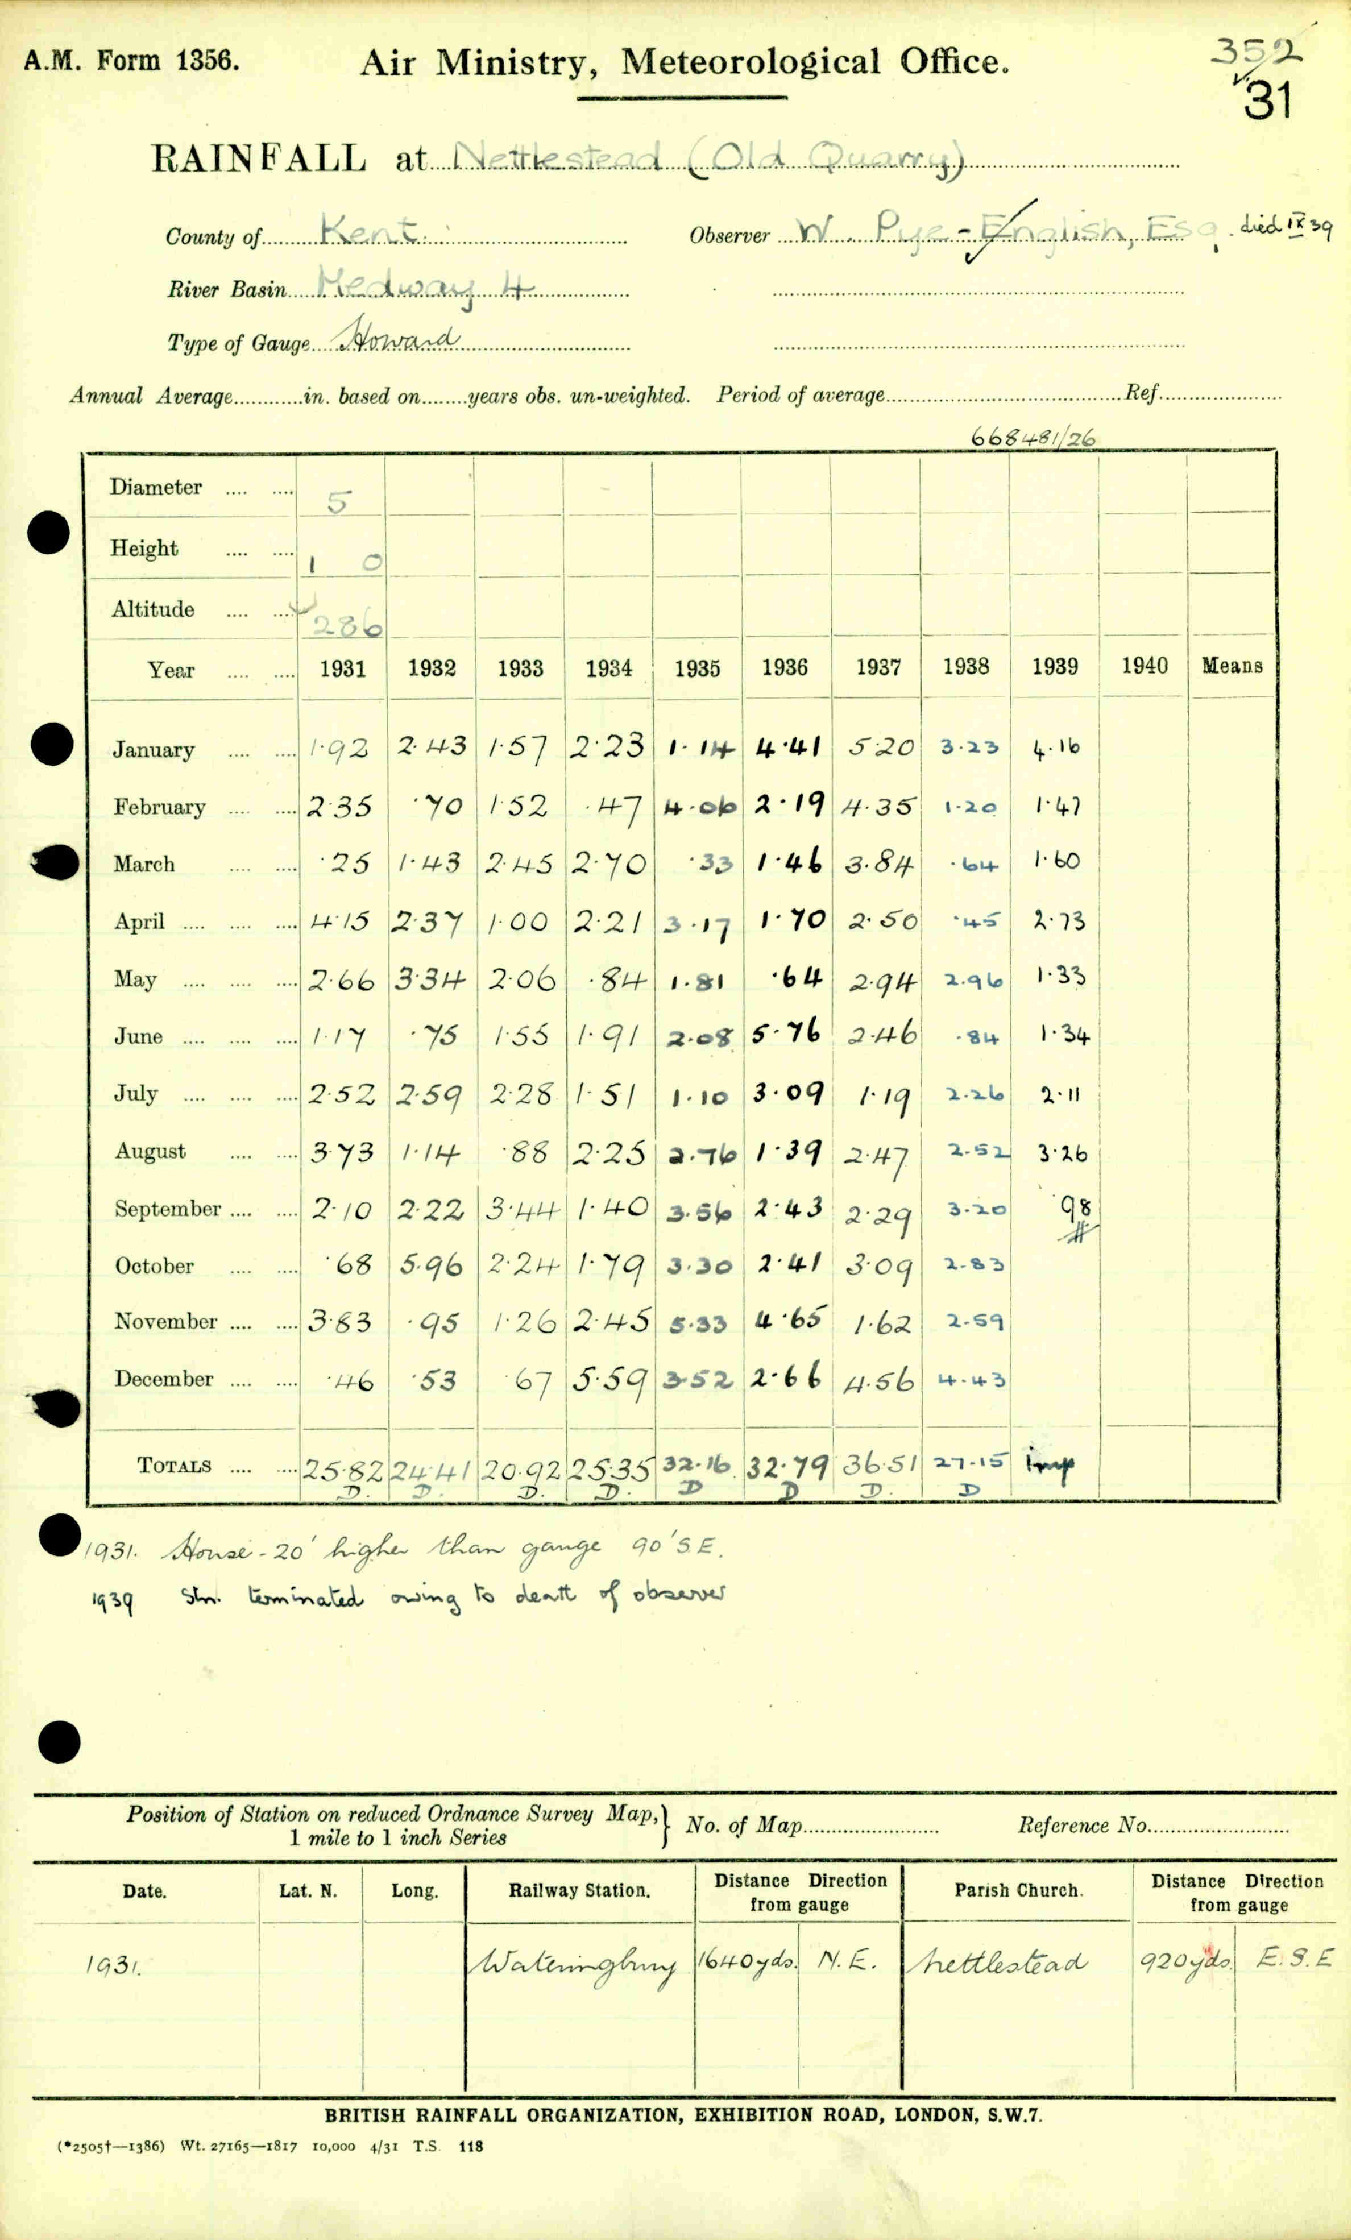 A.M. Form 1356.
Air Ministry, Meteorological Office.
352
31
RAINFALL at Nettlestead (Old Quarry)
County of Kent. Observer W. Pye-English, Esq. died IX 39
River Basin Medway 4
Type of Gauge Howard
Annual Average in. based on years obs. un-weighted. Period of average Ref.
668481/26
Diameter 5
Height 1 0
Altitude 286
Year 1931 1932 1933 1934 1935 1936 1937 1938 1939 1940 Means
January 1·92 2·43 1·57 2·23 1·14 4·41 5·20 3·23 4·16
February 2·35 ·70 1·52 ·47 4·06 2·19 4·35 1·20 1·47
March ·25 1·43 2·45 2·70 ·33 1·46 3·84 ·64 1·60
April 4·15 2·37 1·00 2·21 3·17 1·70 2·50 ·45 2·73
May 2·66 3·34 2·06 ·84 1·81 ·64 2·94 2·96 1·33
June 1·17 ·75 1·55 1·91 2·08 5·76 2·46 ·84 1·34
July 2·52 2·59 2·28 1·51 1·10 3·09 1·19 2·26 2·11
August 3·73 1·14 ·88 2·25 2·76 1·39 2·47 2·52 3·26
September 2·10 2·22 3·44 1·40 3·56 2·43 2·29 3·20 ·98
October ·68 5·96 2·24 1·79 3·30 2·41 3·09 2·83
November 3·83 ·95 1·26 2·45 5·33 4·65 1·62 2·59
December ·46 ·53 ·67 5·59 3·52 2·66 4·56 4·43
TOTALS 25·82 24·41 20·92 25·35 32·16 32·79 36·51 27·15 imp
D. D. D. D. D D D. D
1931. House - 20' higher than gauge 90' S E.
1939 Stn. terminated owing to death of observer
Position of Station on reduced Ordnance Survey Map, 1 mile to 1 inch Series } No. of Map Reference No.
Date. Lat. N. Long. Railway Station. Distance Direction from gauge Parish Church. Distance Direction from gauge
1931. Wateringbury 1640 yds. N.E. Nettlestead 920 yds. E.S.E
BRITISH RAINFALL ORGANIZATION, EXHIBITION ROAD, LONDON, S.W.7.
(*2505†—1386) Wt. 27165—1817 10,000 4/31 T.S. 118